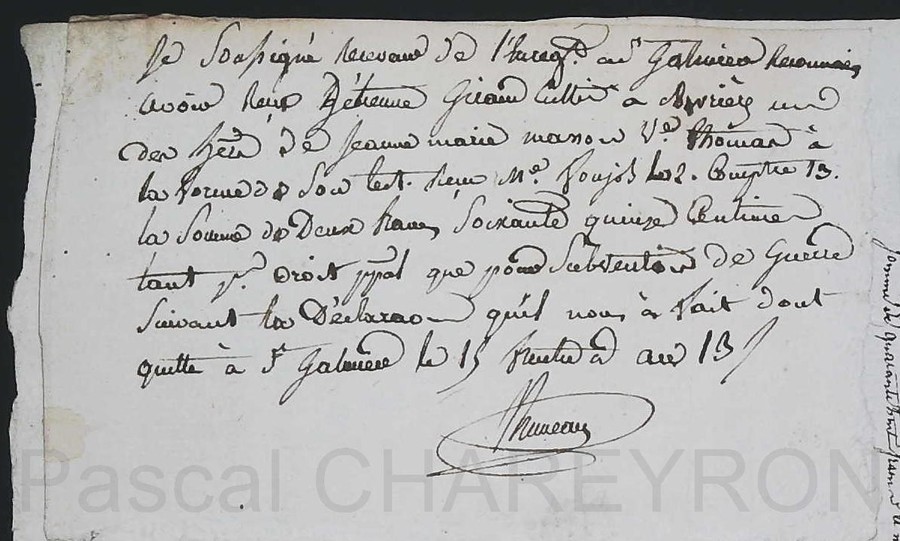 Je Soussigné Receveur de l'Enregt. à St Galmier Reconnois
avoir Reçu d'étienne Giraud Cultr. à Avrieux un
des hers. de Jeanne marie masson Ve. Thomas à
la forme de Son test. Reçu Me. le 2. Compre 13.
la Somme de Deux francs Soixante quinze Centimes
tant pr. Droit ppal que pour Subvention de Guerre
Suivant la Déclaraon qu'il nous à fait dont
quitte à St Galmier le 15 an 13
Pascal CHAREYRON
Somme de quarante huit francs